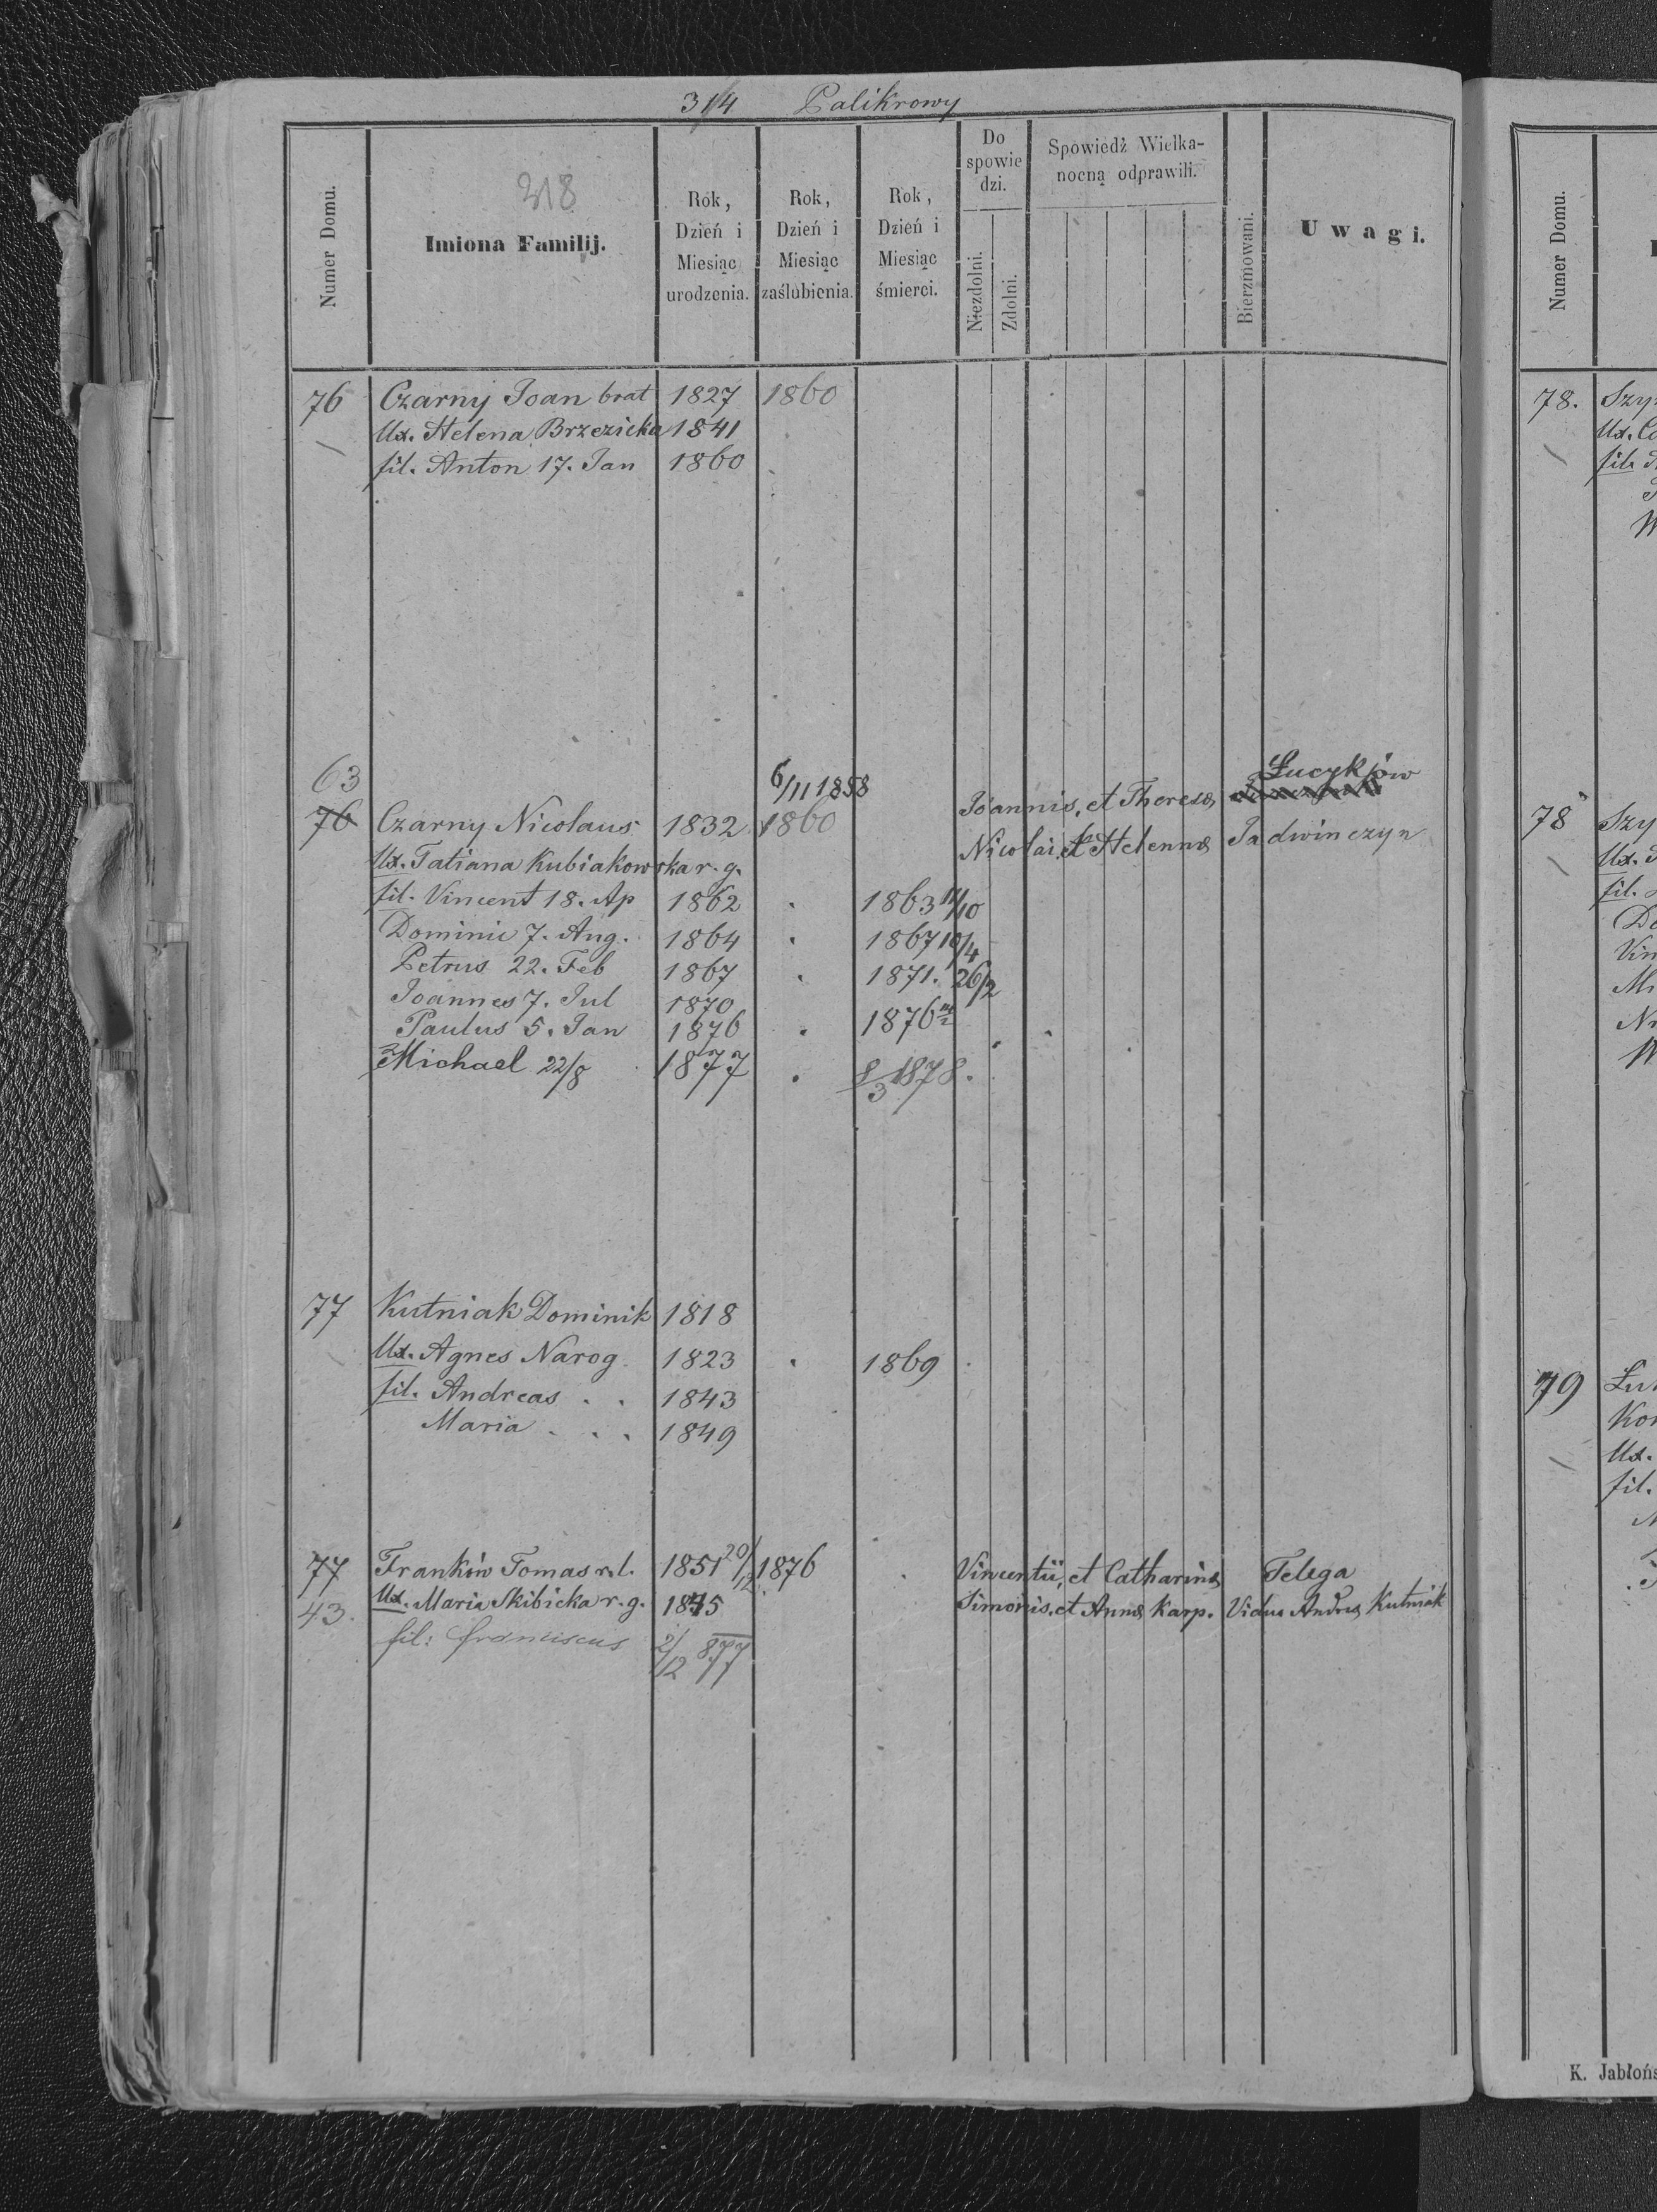 314 Palikrowy
318
Numer Domu.
Imiona Familij.
Rok, Dzień i Miesiąc urodzenia.
Rok, Dzień i Miesiąc zaślubienia.
Rok, Dzień i Miesiąc śmierci.
Do spowiedzi.
Niezdolni.
Zdolni.
Spowiedź Wielkanocną odprawili.
Bierzmowani.
Uwagi.
76 Czarny Joan brat 1827 1860
Ux. Helena Brzezicka 1841
fil. Anton 17. Jan 1860
63 6/11 1858 Łucyków
76 Czarny Nicolaus 1832 1860 Joannis, et Theresæ
Ux. Tatiana Kubiakowska r. g. Nicolai, et Helennæ Jadwinczyn
fil. Vincent 18. Ap 1862 . 1863 11/10
Dominic 7. Aug. 1864 . 1867 10/4
Petrus 22. Feb 1867 . 1871. 26/2
Joannes 7. Jul 1870
Paulus 5. Jan 1876 . 1876
Michael 22/8 1877 . 8/3 1878.
77 Kutniak Dominik 1818
Ux. Agnes Narog 1823 . 1869
fil. Andreas . . 1843
Maria . . . 1849
77 Franków Tomas r. l. 1851 20/12 1876 Vincentii, et Catharinæ Telega
43. Ux. Maria Skibicka r. g. 1845 Simonis, et Annæ Karp. Vidua Andreæ Kutniak
fil: franciscus 2/12 877
Numer Domu.
78. Szy
Ux.
fil.
78 Szy
Ux.
fil.
Do
Vin
79 Łu
Kor
Ux.
fil.
K. Jabłońs